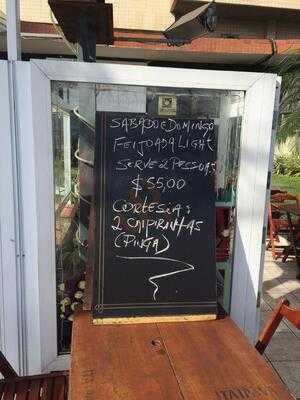 SABADO E DOMINGO
FEIJOADA LIGHT
SERVE 2 PESSOAS
$ 55,00
CORTESIA:
2 CAIPIRINHAS
(PINGA)